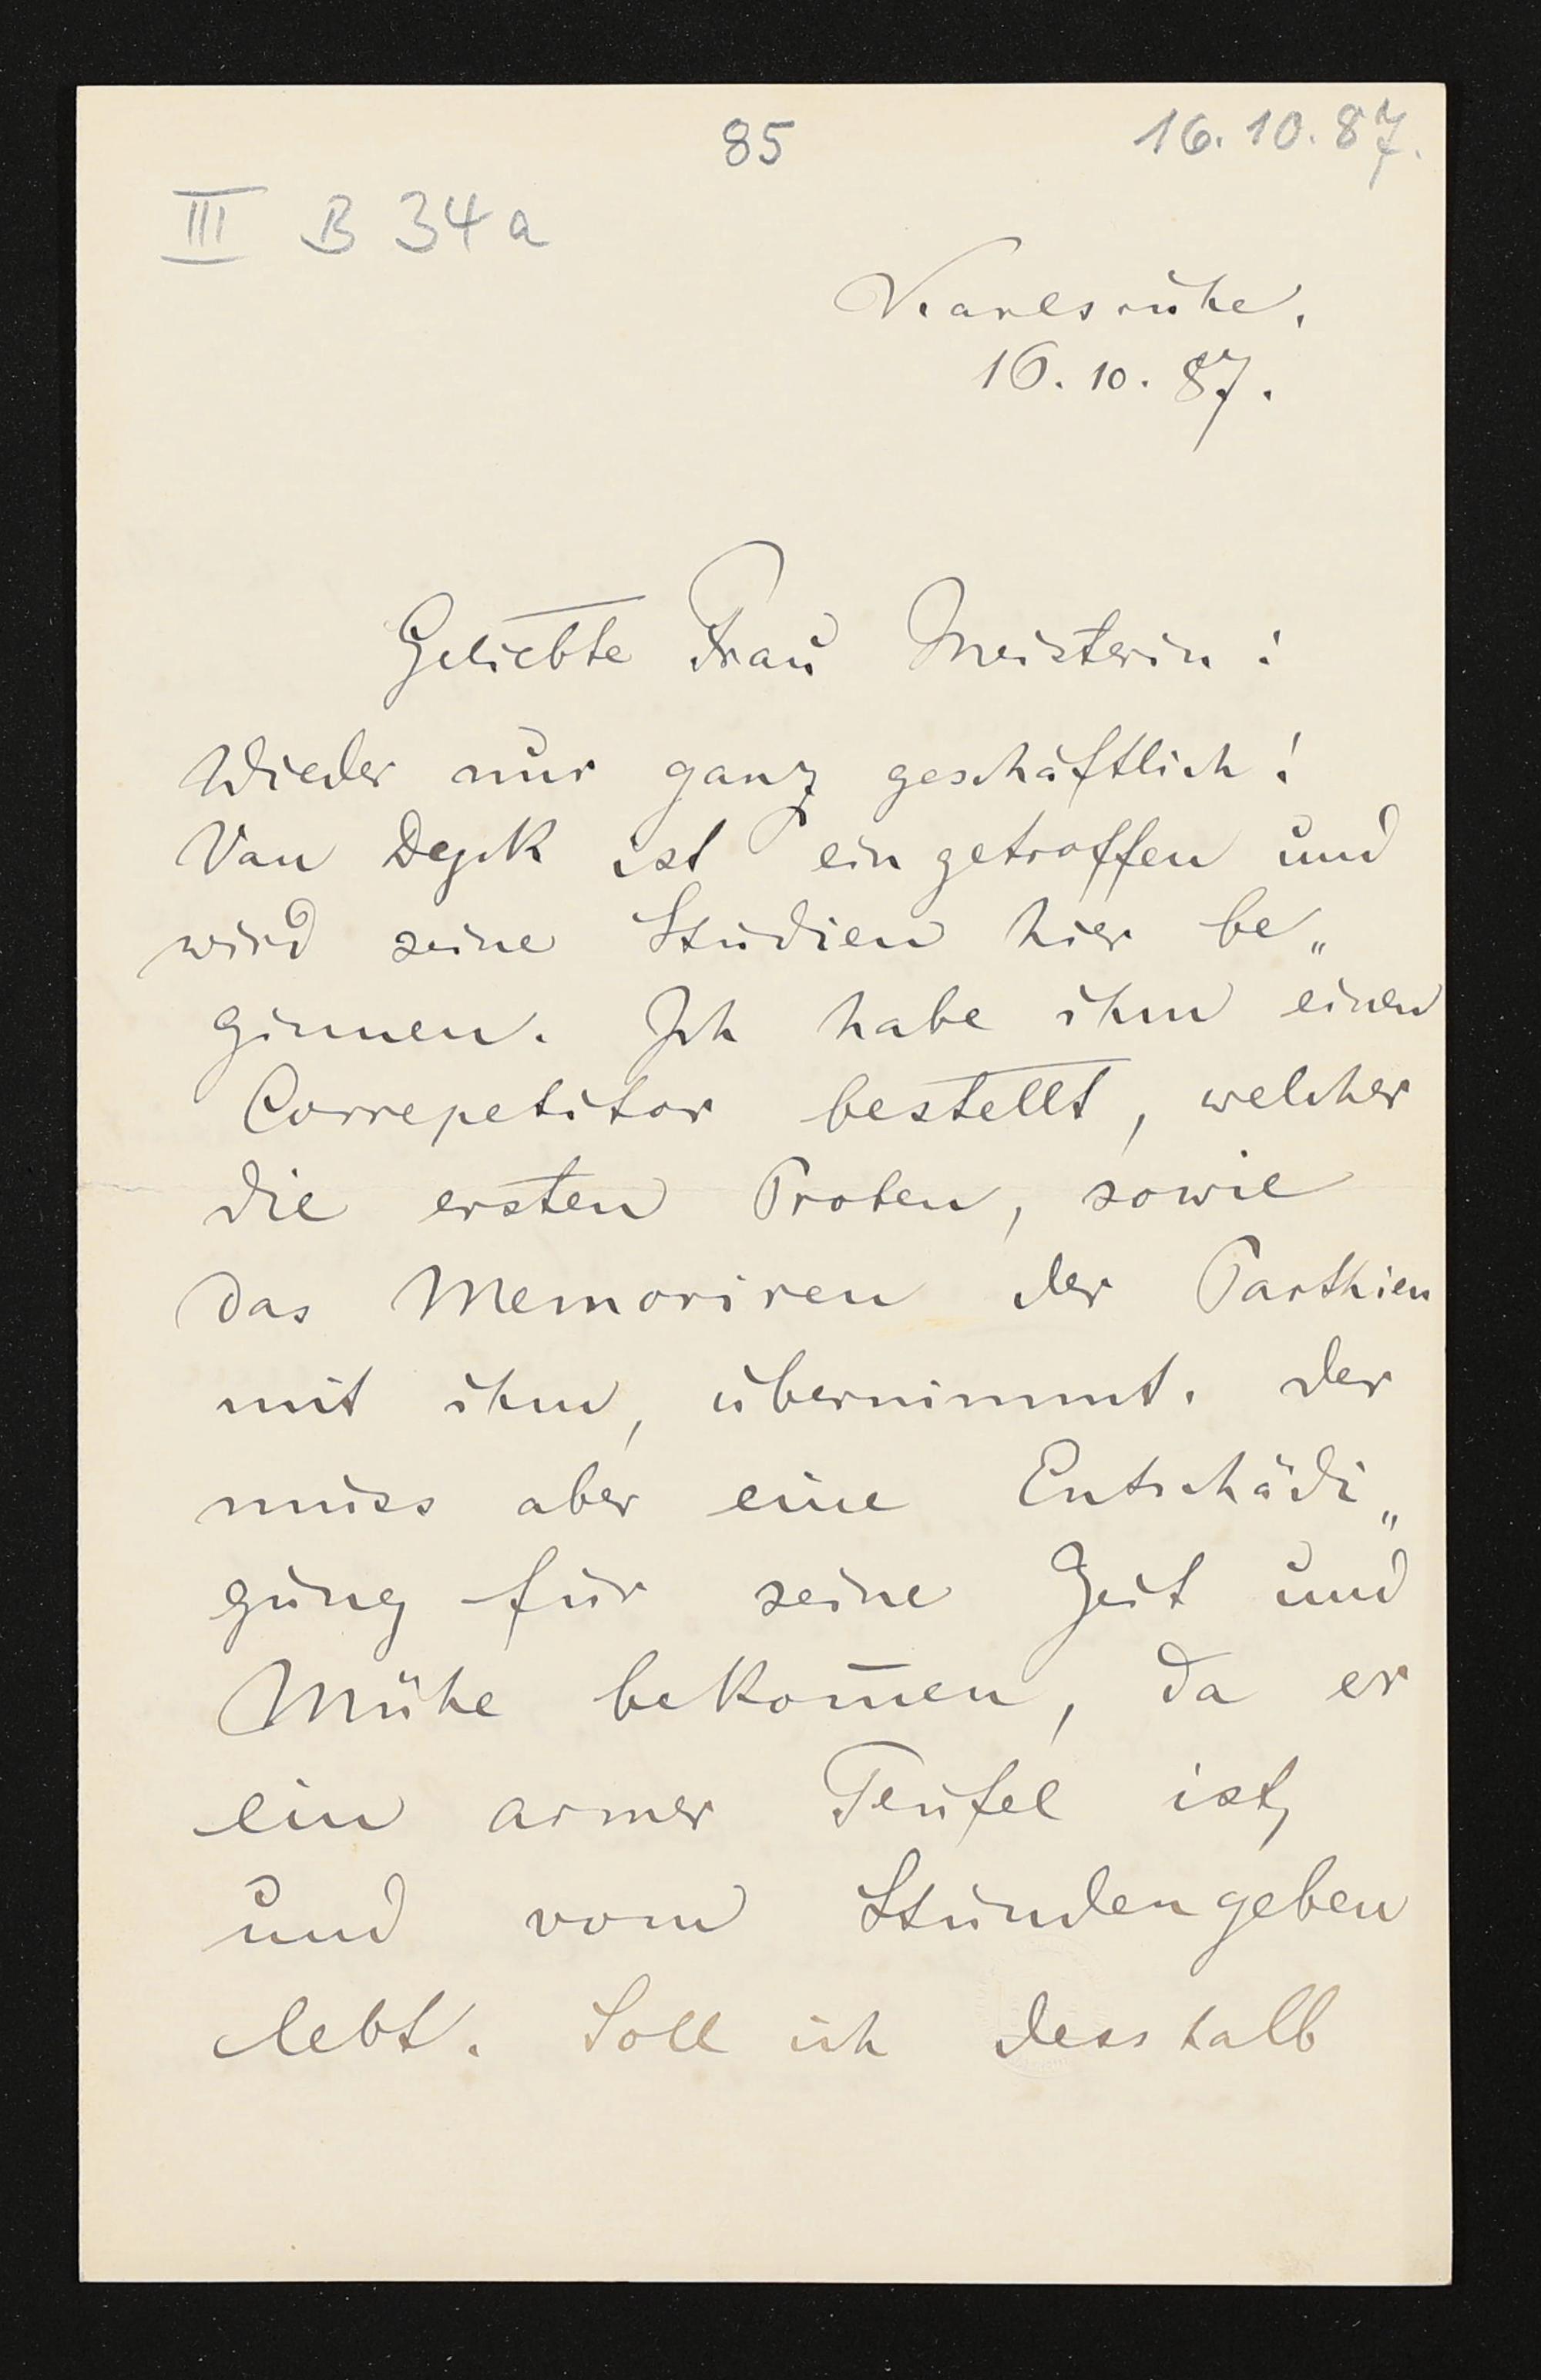 85
16.10.87.
III B 34 a
Karlsruhe.
16. 10. 87.
Geliebte Frau Meisterin!
Wieder nur ganz geschäftlich!
Van Dyck ist eingetroffen und
wird seine Studien hier be„
ginnen. Ich habe ihm einen
Correpetitor bestellt, welcher
die ersten Proben, sowie
das Memoriren der Parthien
mit ihm, übernimmt. Der
muss aber eine Entschädi„
gung für seine Zeit und
Mühe bekom̄en, da er
ein armer Teufel ist,
und vom Stundengeben
lebt. Soll ich desshalb